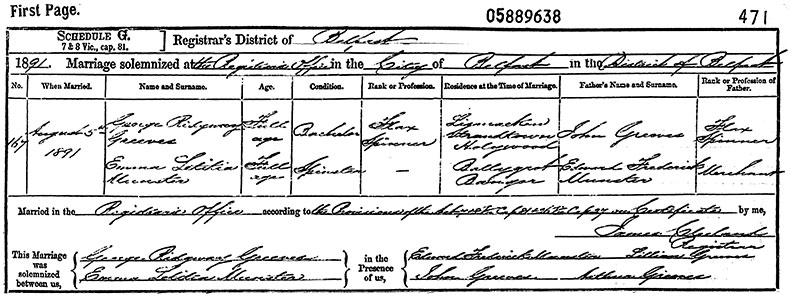 First Page. 05889638 471
SCHEDULE G.
7 & 8 Vic., cap. 81.
Registrar's District of Belfast
1891. Marriage solemnized at the Registrar's Office in the City of Belfast in the District of Belfast
No. When Married. Name and Surname. Age. Condition. Rank or Profession. Residence at the Time of Marriage. Father's Name and Surname. Rank or Profession of Father.
167 August 5th 1891 George Ridgway Greeves Full age Bachelor Flax Spinner Strandtown Holywood John Greeves Flax Spinner
Emma Letitia Munster Full age Spinster — Ballygrot Bangor Edward Frederick Munster Merchant
Married in the Registrar's Office according to the Provisions of the by me,
James Registrar
This Marriage was solemnized between us, George Ridgway Greeves in the Presence of us, Edward Frederick Munster Lillian Greeves
Emma Letitia Munster John Greeves Greeves